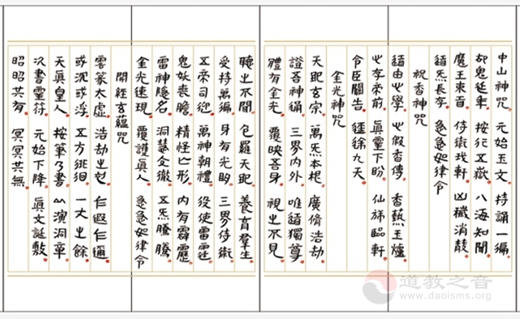 中山神咒 元始玉文 持誦一遍
却鬼延年 按行五嶽 八海知聞
魔王束首 侍衛我軒 凶穢消散
道炁長存 急急如律令
祝香神咒
道由心學 心假香傳 香爇玉爐
心存帝前 真靈下盼 仙旆臨軒
令臣關告 徑徐九天
金光神咒
天地玄宗 萬炁本根 廣修浩劫
證吾神通 三界內外 唯道獨尊
體有金光 覆映吾身 視之不見
聽之不聞 包羅天地 養育群生
受持萬遍 身有光明 三界侍衛
五帝司迎 萬神朝禮 役使雷霆
鬼妖喪膽 精怪亡形 內有霹靂
雷神隱名 洞慧交徹 五炁騰騰
金光速現 覆護真人 急急如律令
開經玄蘊咒
雲篆太虛 浩劫之初 乍遐乍邇
或沉或浮 五方徘徊 一丈之餘
天真皇人 按筆乃書 以演洞章
次書靈符 元始下降 真文誕敷
昭昭其有 冥冥其無
道教之音
www.daoisms.org